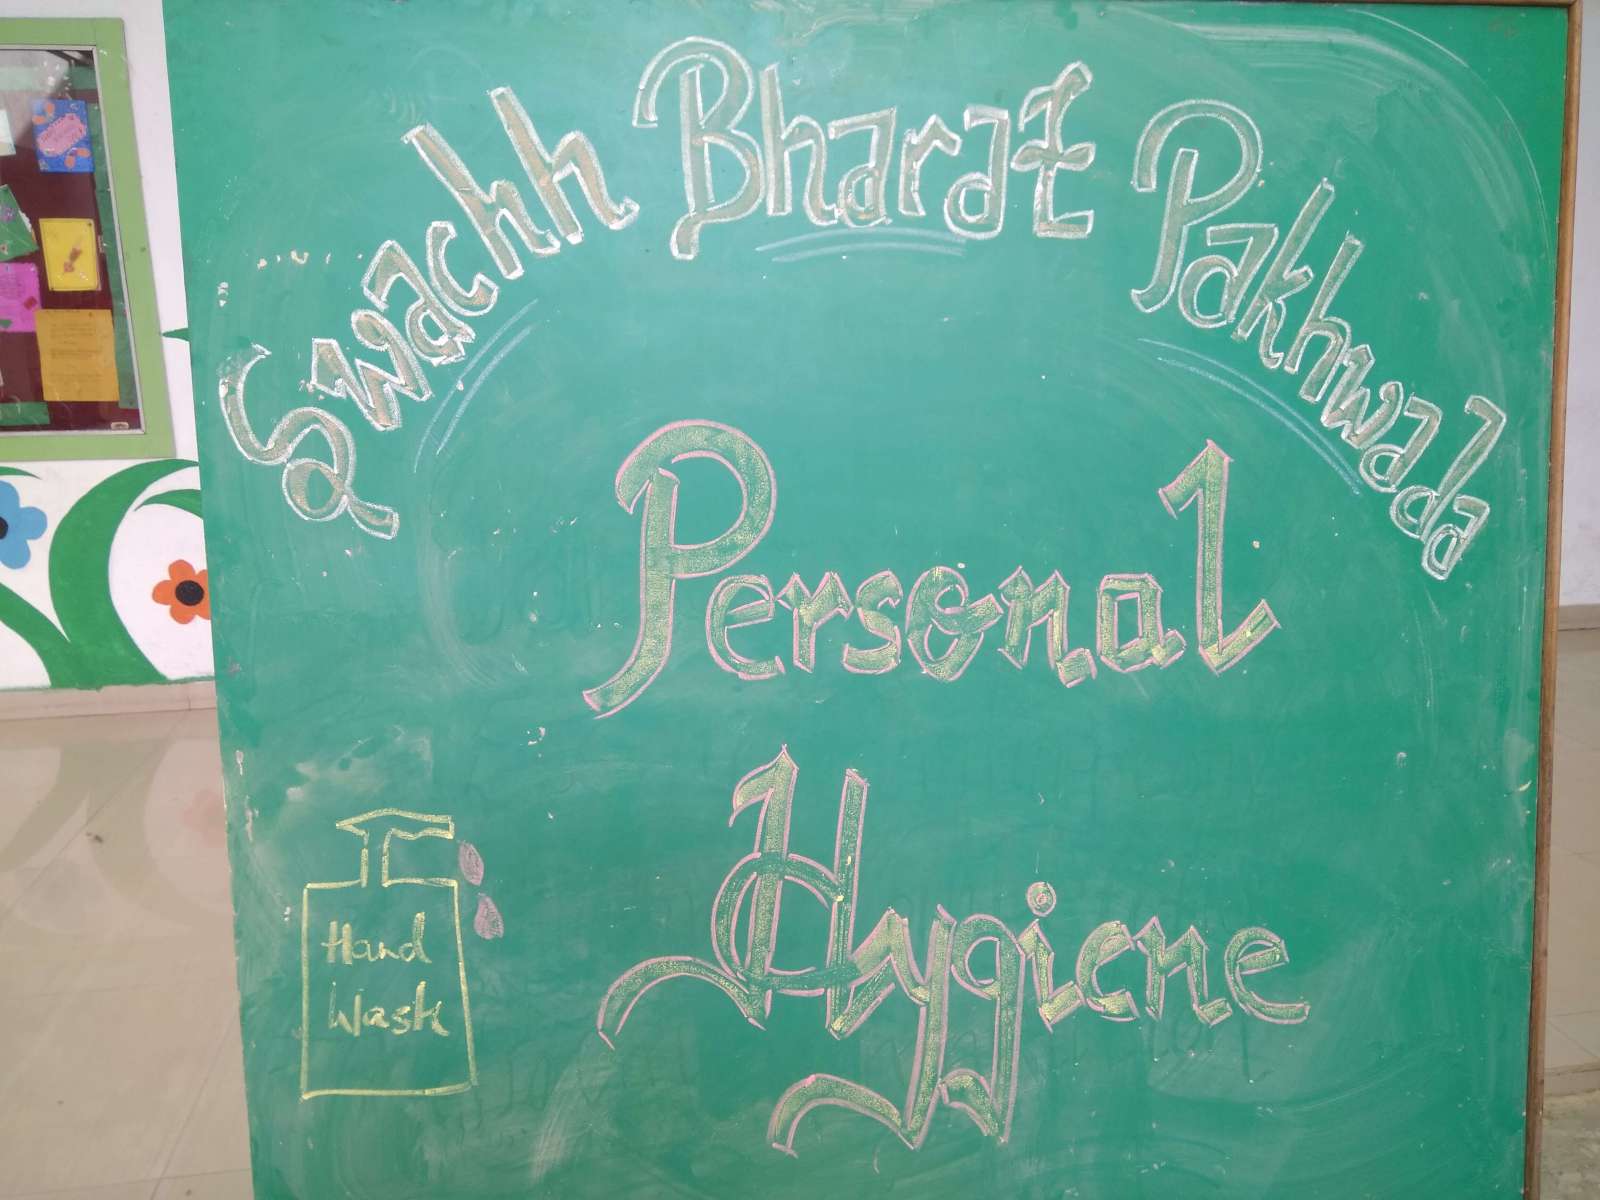 Swachh Bharat Pakhwada
Personal
Hygiene
Hand
Wash